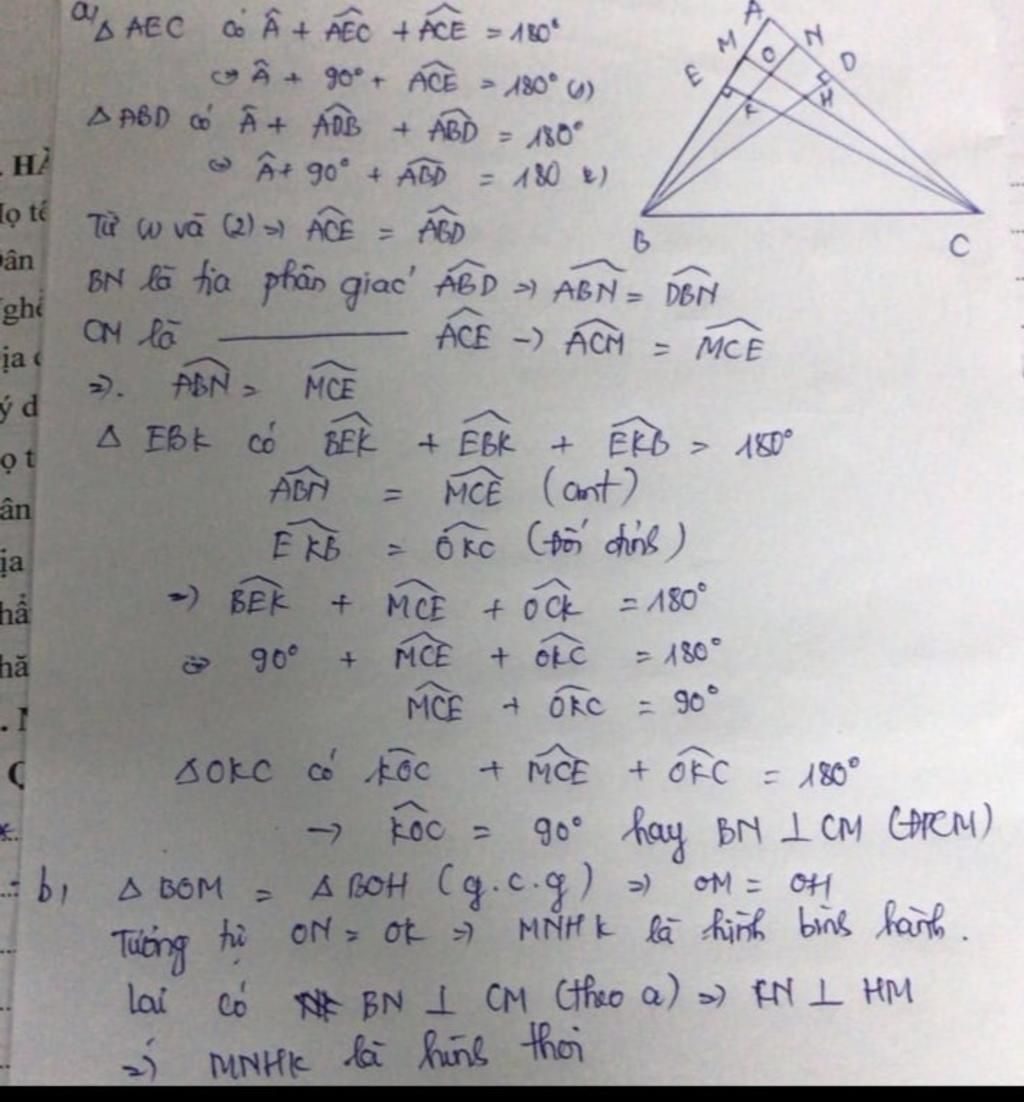 a, △ AEC có Â + AEC + ACE = 180°
⇔ Â + 90° + ACE = 180° (1)
△ ABD có Â + ADB + ABD = 180°
⇔ Â + 90° + ABD = 180 (2)
Từ (1) và (2) ⇒ ACE = ABD
BN là tia phân giác ABD ⇒ ABN = DBN
CM là ——— ACE → ACM = MCE
⇒. ABN = MCE
△ EBK có BEK + EBK + EKB = 180°
ABN = MCE (cmt)
EKB = OKC (đối đỉnh)
⇒ BEK + MCE + OCK = 180°
⇔ 90° + MCE + OKC = 180°
MCE + OKC = 90°
△OKC có KOC + MCE + OKC = 180°
→ KOC = 90° hay BN ⊥ CM (ĐPCM)
b, △ BOM = △ BOH (g.c.g) ⇒ OM = OH
Tương tự ON = OK ⇒ MNHK là hình bình hành.
lại có BN ⊥ CM (theo a) ⇒ KN ⊥ HM
⇒ MNHK là hình thoi
A
M
O
N
D
E
K
H
B
C
. HÀ
Họ tê
ân
ghề
ịa c
ý d
ọ t
ân
ịa
hẩ
hă